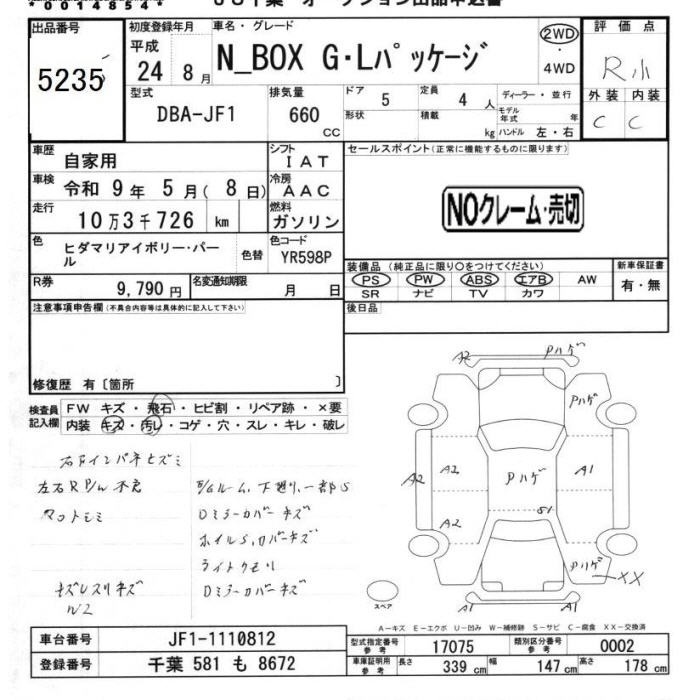 *0014854*
出品番号
5235
初度登録年月
平成
24 8月
車名・グレード
N_BOX G・Lパッケージ
2WD
4WD
評価点
R小
外装 内装
C C
型式
DBA-JF1
排気量
660 CC
ドア 5
定員 4人
形状
積載 kg
ディーラー・並行
モデル年式 年
ハンドル 左・右
車歴 自家用
シフト IAT
車検 令和 9年 5月(8日)
冷房 AAC
走行 10万3千726 km
燃料 ガソリン
色 ヒダマリアイボリー・パール
色替
色コード YR598P
R券 9,790円
名変通知期限 月 日
セールスポイント(正常に機能するものに限ります)
NOクレーム・売切
装備品 (純正品に限り○をつけてください)
PS PW ABS エアB AW
SR ナビ TV カワ
新車保証書
有・無
後日品
注意事項申告欄(不具合内容等は具体的に記入して下さい)
修復歴 有〔箇所 〕
検査員記入欄
FW キズ・飛石・ヒビ割・リペア跡・×要
内装 キズ・汚レ・コゲ・穴・スレ・キレ・破レ
左右R P/w 不良
下廻リ、一部S
Dミラーカバーキズ
ライトクモリ
Dミラーカバーキズ
A2
Pハゲ
Pハゲ
A2
A2
Pハゲ
A1
A2
S1
Pハゲ
XX
A1
A1
スペア
A-キズ E-エクボ U-凹み W-補修跡 S-サビ C-腐食 XX-交換済
車台番号 JF1-1110812
登録番号 千葉 581 も 8672
型式指定番号 参考 17075
類別区分番号 参考 0002
車庫証明用 参考 長さ 339 cm 幅 147 cm 高さ 178 cm